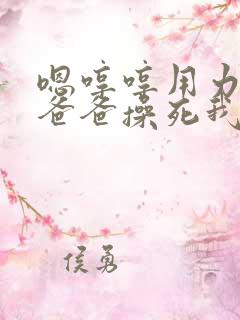 嗯哼哼用力
爸爸操死我
侯勇